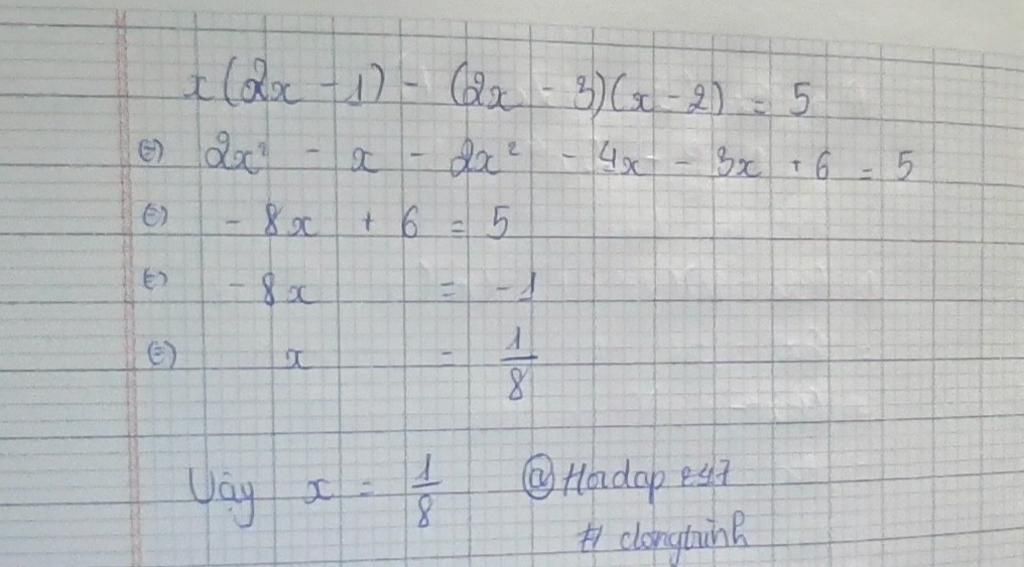 x(2x - 1) - (2x - 3)(x - 2) = 5
⇔ 2x² - x - 2x² - 4x - 3x + 6 = 5
⇔ - 8x + 6 = 5
⇔ - 8x = -1
⇔ x = 1/8
Vậy x = 1/8 @Hoidap247
# dongtrinh